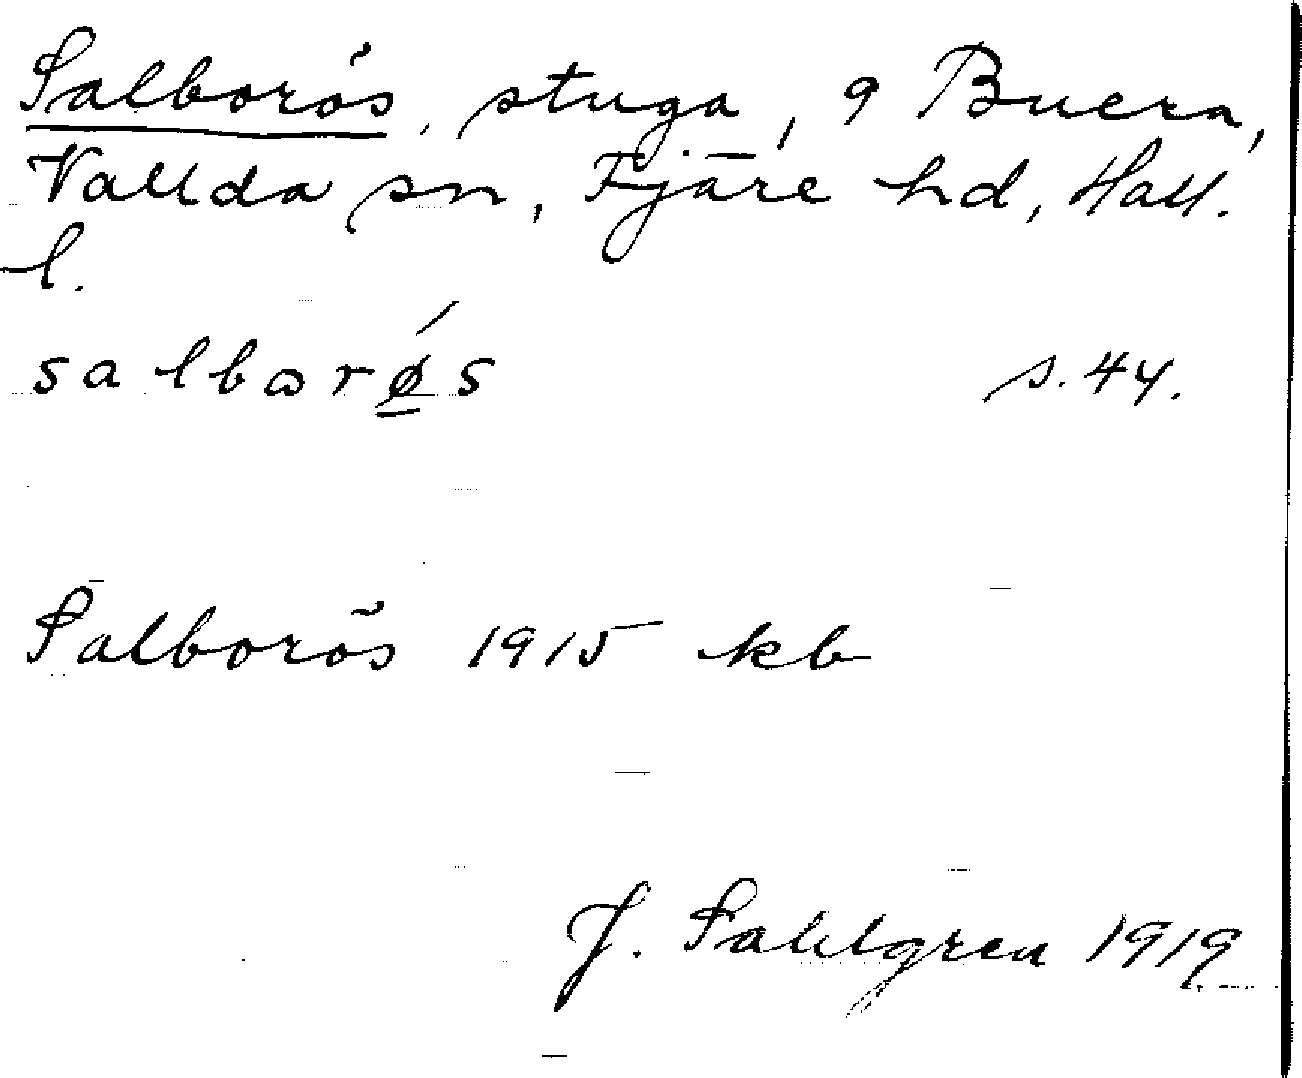 Salborös, stuga, 9 Buera,
Vallda sn, Fjäre hd, Hall.
l.
salborǿ̱s s. 44.
Salborös 1915 kb
J. Sahlgren 1919